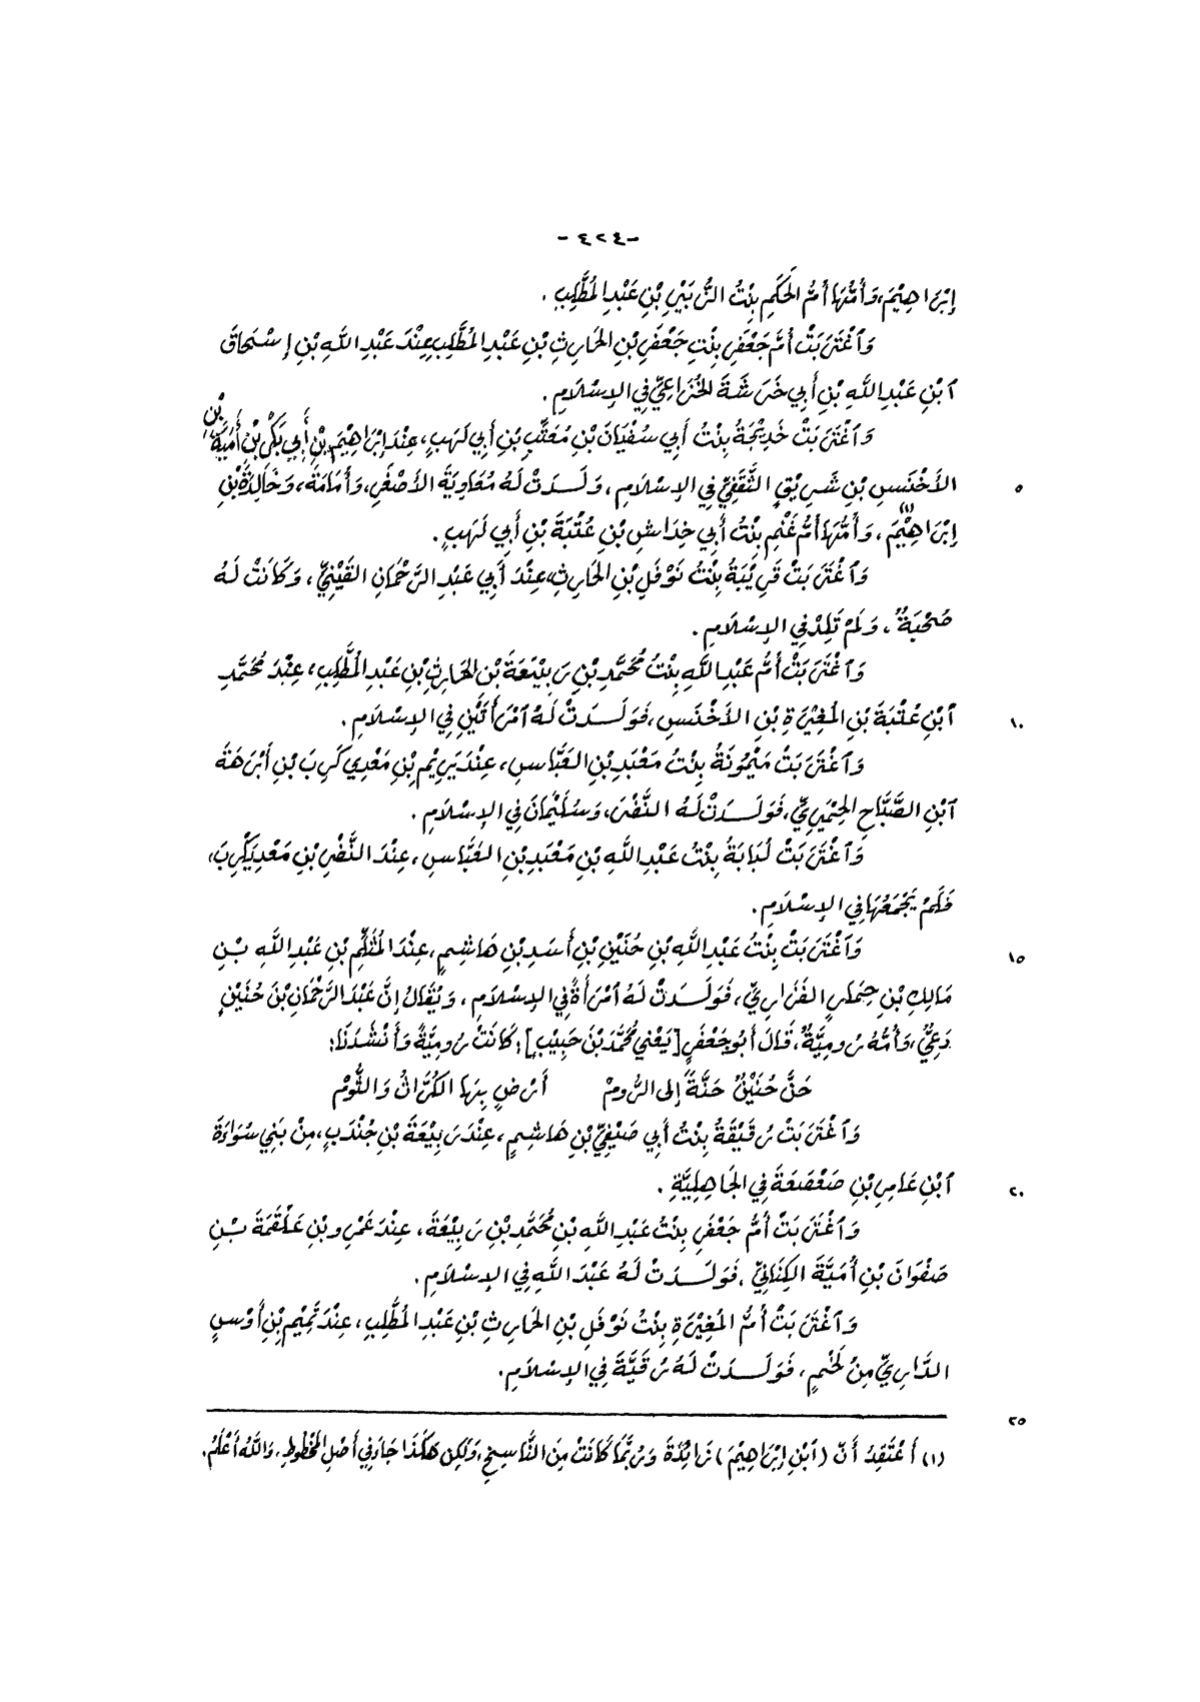 -٤٢٤-
إِبْرَاهِيْمَ، وَأُمُّهَا أُمُّ الحَكَمِ بِنْتُ الزُّبَيْرِ بْنِ عَبْدِ المُطَّلِبِ.
وَٱغْتَرَبَتْ أُمُّ جَعْفَرٍ بِنْتِ جَعْفَرِ بْنِ الحَارِثِ بْنِ عَبْدِ المُطَّلِبِ عِنْدَ عَبْدِ اللَّهِ بْنِ إِسْحَاقَ
ٱبْنِ عَبْدِ اللَّهِ بْنِ أَبِي خَرَشَةَ الخُزَاعِيِّ فِي الإِسْلَامِ.
وَٱغْتَرَبَتْ خَدِيْجَةُ بِنْتُ أَبِي سُفْيَانَ بْنِ مُعَتِّبِ بْنِ أَبِي لَهَبٍ، عِنْدَ إِبْرَاهِيْمَ بْنِ أَبِي بَكْرِ بْنِ أُمَيَّةَ بْنِ
الأَخْنَسِ بْنِ شَرِيْقٍ الثَّقَفِيِّ فِي الإِسْلَامِ، وَلَدَتْ لَهُ مُعَاوِيَةَ الأَصْغَرَ، وَأُمَامَةَ، وَخَالِدَةَ بْنِ
إِبْرَاهِيْمَ(١)، وَأُمُّهَا أُمُّ غَنْمٍ بِنْتُ أَبِي خِدَاشِ بْنِ عُتْبَةَ بْنِ أَبِي لَهَبٍ.
وَٱغْتَرَبَتْ قَرِيْبَةُ بِنْتُ نَوْفَلِ بْنِ الحَارِثِ، عِنْدَ أَبِي عَبْدِ الرَّحْمَانِ القَيْنِيِّ، وَكَانَتْ لَهُ
صُحْبَةٌ، وَلَمْ تَلِدْ فِي الإِسْلَامِ.
وَٱغْتَرَبَتْ أُمُّ عَبْدِ اللَّهِ بِنْتُ مُحَمَّدِ بْنِ رَبِيْعَةَ بْنِ الحَارِثِ بْنِ عَبْدِ المُطَّلِبِ، عِنْدَ مُحَمَّدِ
ٱبْنِ عُتْبَةَ بْنِ المُغِيْرَةِ بْنِ الأَخْنَسِ، فَوَلَدَتْ لَهُ ٱمْرَأَتَيْنِ فِي الإِسْلَامِ.
وَٱغْتَرَبَتْ مَيْمُونَةُ بِنْتُ مَعْبَدِ بْنِ العَبَّاسِ، عِنْدَ يَرِيْمِ بْنِ مَعْدِي كَرِبَ بْنِ أَبْرَهَةَ
ٱبْنِ الصَّبَّاحِ الحِمْيَرِيِّ، فَوَلَدَتْ لَهُ النَّضْرَ، وَسُلَيْمَانَ فِي الإِسْلَامِ.
وَٱغْتَرَبَتْ لُبَابَةُ بِنْتُ عَبْدِ اللَّهِ بْنِ مَعْبَدِ بْنِ العَبَّاسِ، عِنْدَ النَّضْرِ بْنِ مَعْدِيكَرِبَ،
فَلَمْ يَجْمَعْهَا فِي الإِسْلَامِ.
وَٱغْتَرَبَتْ بِنْتُ عَبْدِ اللَّهِ بْنِ حُنَيْنِ بْنِ أَسَدِ بْنِ هَاشِمٍ، عِنْدَ المُثَلَّمِ بْنِ عَبْدِ اللَّهِ بْنِ
مَالِكِ بْنِ حِمَارٍ الفَزَارِيِّ، فَوَلَدَتْ لَهُ ٱمْرَأَةً فِي الإِسْلَامِ، وَيُقَالُ إِنَّ عَبْدَ الرَّحْمَانِ بْنَ حُنَيْنٍ
دَعِيٌّ، وَأُمُّهُ رُومِيَّةٌ، قَالَ أَبُو جَعْفَرٍ [يَعْنِي مُحَمَّدَ بْنَ حَبِيْبٍ]: كَانَتْ رُومِيَّةً وَأَنْشَدَنَا:
حَنَّ حُنَيْنٌ حَنَّةً إِلَى الرُّومْ أَرْضٍ بِهَا الكُرَّاثُ وَالثُّومْ
وَٱغْتَرَبَتْ رُقَيْقَةُ بِنْتُ أَبِي صَيْفِيِّ بْنِ هَاشِمٍ، عِنْدَ رَبِيْعَةَ بْنِ جُنْدَبٍ، مِنْ بَنِي سُوَاءَةَ
ٱبْنِ عَامِرِ بْنِ صَعْصَعَةَ فِي الجَاهِلِيَّةِ.
وَٱغْتَرَبَتْ أُمُّ جَعْفَرِ بِنْتُ عَبْدِ اللَّهِ بْنِ مُحَمَّدِ بْنِ رَبِيْعَةَ، عِنْدَ عَمْرِو بْنِ عَلْقَمَةَ بْنِ
صَفْوَانَ بْنِ أُمَيَّةَ الكِنَانِيِّ، فَوَلَدَتْ لَهُ عَبْدَ اللَّهِ فِي الإِسْلَامِ.
وَٱغْتَرَبَتْ أُمُّ المُغِيْرَةِ بِنْتُ نَوْفَلِ بْنِ الحَارِثِ بْنِ عَبْدِ المُطَّلِبِ، عِنْدَ تَمِيْمِ بْنِ أَوْسٍ
الدَّارِيِّ مِنْ لَخْمٍ، فَوَلَدَتْ لَهُ رُقَيَّةَ فِي الإِسْلَامِ.
٥
١٠
١٥
٢٠
٢٥
(١) أَعْتَقِدُ أَنَّ (ٱبْنِ إِبْرَاهِيْمَ) زَائِدَةٌ وَرُبَّمَا كَانَتْ مِنَ النَّاسِخِ، وَلَكِن هَكَذَا جَاءَ فِي أَصْلِ المَخْطُوطِ، وَاللَّهُ أَعْلَمُ.